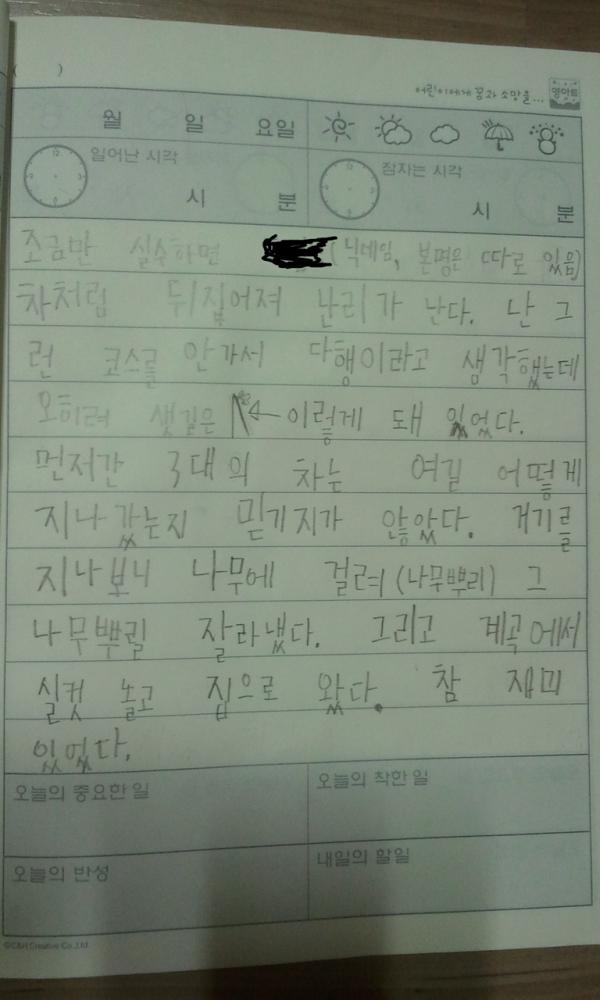 ( )
어린이에게 꿈과 소망을... 영아트
월 일 요일
일어난 시각 잠자는 시각
시 분 시 분
조금만 실수하면 (닉네임, 본명은 따로 있음)
차처럼 뒤집어져 난리가 난다. 난 그
런 코스를 안가서 다행이라고 생각했는데
오히려 샛길은 이렇게 돼 있었다.
먼저간 3대의 차는 여길 어떻게
지나갔는지 믿기지가 않았다. 거기를
지나보니 나무에 걸려(나무뿌리) 그
나무뿌릴 잘라냈다. 그리고 계곡에서
실컷 놀고 집으로 왔다. 참 재미
있었다.
오늘의 중요한 일 오늘의 착한 일
오늘의 반성 내일의 할일
©C&H Creative Co.,Ltd.